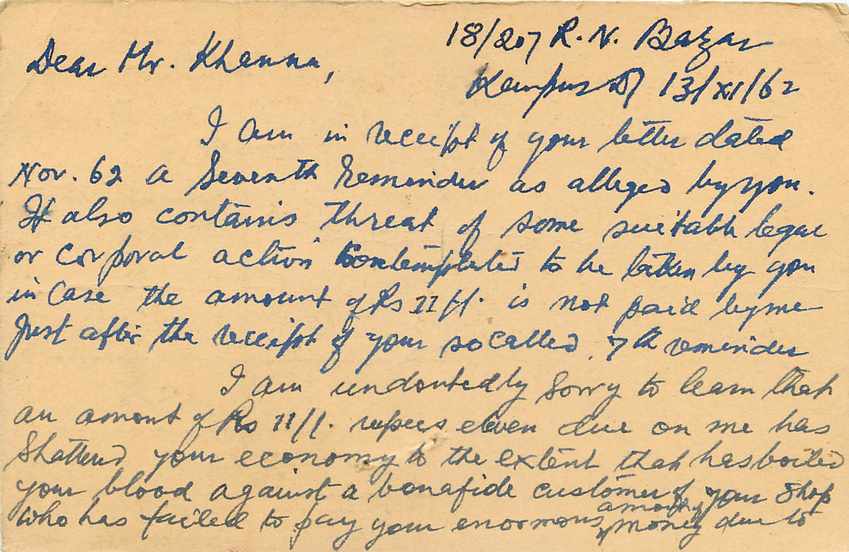 18/207 R. N. Bazar
Dear Mr. Khanna,
13/XI/62
I am in receipt of your letter dated
Nov. 62 a Seventh Reminder as alleged by you.
It also contains threat of some suitable legal
or corporal action contemplated to be taken by you
in case the amount of Rs 11/-. is not paid by me
just after the receipt of your so called 7th reminder
I am undoutedly sorry to learn that
an amont of Rs 11/-. rupees eleven due on me has
Shattered your economy to the extent that has boiled
your blood against a bonafide customer of your Shop
who has failed to pay your enormous amount of money due to